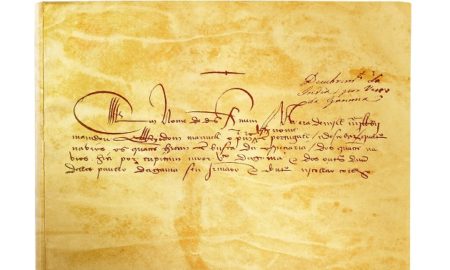 Descobrimto da
India, por Vasco
da Gamma
Em Nome de ds Amem Na era de mill
nome
mandou Ellrey dom manuell o primo portugall / a descobrir quatro
navios os quaes hiam em busca da especiaria / dos quaes na
vios hia por capitam moor Vco dagama e dos outros duu
delles paullo dagama seu irmaoo e nicollao coelho